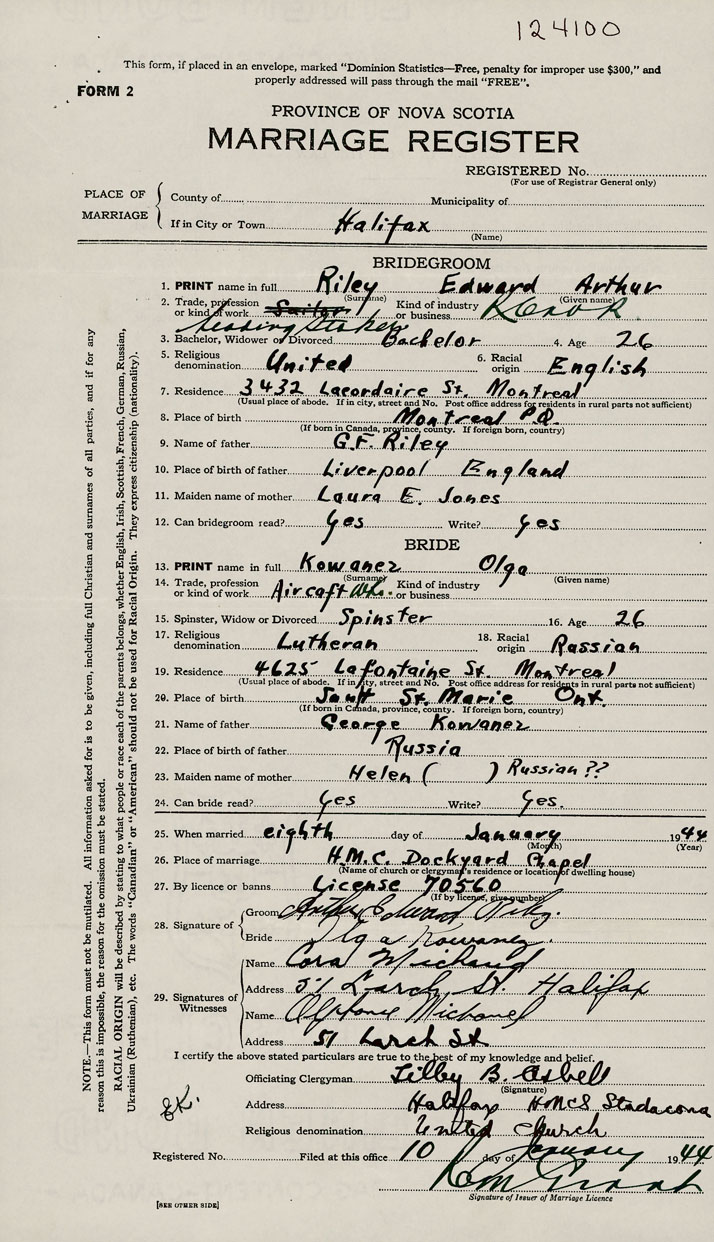 124100
This form, if placed in an envelope, marked "Dominion Statistics—Free, penalty for improper use $300," and
properly addressed will pass through the mail "FREE".
FORM 2
PROVINCE OF NOVA SCOTIA
MARRIAGE REGISTER
REGISTERED No.
(For use of Registrar General only)
PLACE OF MARRIAGE
County of Municipality of
If in City or Town Halifax
(Name)
BRIDEGROOM
1. PRINT name in full Riley Edward Arthur
(Surname) (Given name)
2. Trade, profession or kind of work Sailor Leading Stoker Kind of industry or business R.C.N.V.R.
3. Bachelor, Widower or Divorced Bachelor 4. Age 26
5. Religious denomination United 6. Racial origin English
7. Residence 3432 Lacordaire St. Montreal
(Usual place of abode. If in city, street and No. Post office address for residents in rural parts not sufficient)
8. Place of birth Montreal P.Q.
(If born in Canada, province, county. If foreign born, country)
9. Name of father G.F. Riley
10. Place of birth of father Liverpool England
11. Maiden name of mother Laura E. Jones
12. Can bridegroom read? Yes Write? Yes
BRIDE
13. PRINT name in full Kowanez Olga
(Surname) (Given name)
14. Trade, profession or kind of work Aircaft Wkr. Kind of industry or business
15. Spinster, Widow or Divorced Spinster 16. Age 26
17. Religious denomination Lutheran 18. Racial origin Rassian
19. Residence 4625 Lafontaine St. Montreal
(Usual place of abode. If in city, street and No. Post office address for residents in rural parts not sufficient)
20. Place of birth Sault St. Marie Ont.
(If born in Canada, province, county. If foreign born, country)
21. Name of father George Kowanez
22. Place of birth of father Russia
23. Maiden name of mother Helen ( ) Russian ??
24. Can bride read? Yes Write? Yes.
25. When married eighth day of January 1944
(Month) (Year)
26. Place of marriage H.M.C. Dockyard Chapel
(Name of church or clergyman's residence or location of dwelling house)
27. By licence or banns License 70560
(If by licence, give number)
28. Signature of
Groom Arthur Edward Riley.
Bride Olga Kowanez.
29. Signatures of Witnesses
Name Cora Michaud
Address 51 Larch St. Halifax
Name Alphonse Michaud
Address 51 Larch St
I certify the above stated particulars are true to the best of my knowledge and belief.
Officiating Clergyman B. Asbell
(Signature)
Address Halifax HMCS Stadacona
Religious denomination United Church
Registered No. Filed at this office 10 day of January 1944
Grant
Signature of Issuer of Marriage Licence
[SEE OTHER SIDE]
NOTE.—This form must not be mutilated. All information asked for is to be given, including full Christian and surnames of all parties, and if for any
reason this is impossible, the reason for the omission must be stated.
RACIAL ORIGIN will be described by stating to what people or race each of the parents belongs, whether English, Irish, Scottish, French, German, Russian,
Ukrainian (Ruthenian), etc. The words "Canadian" or "American" should not be used for Racial Origin. They express citizenship (nationality).